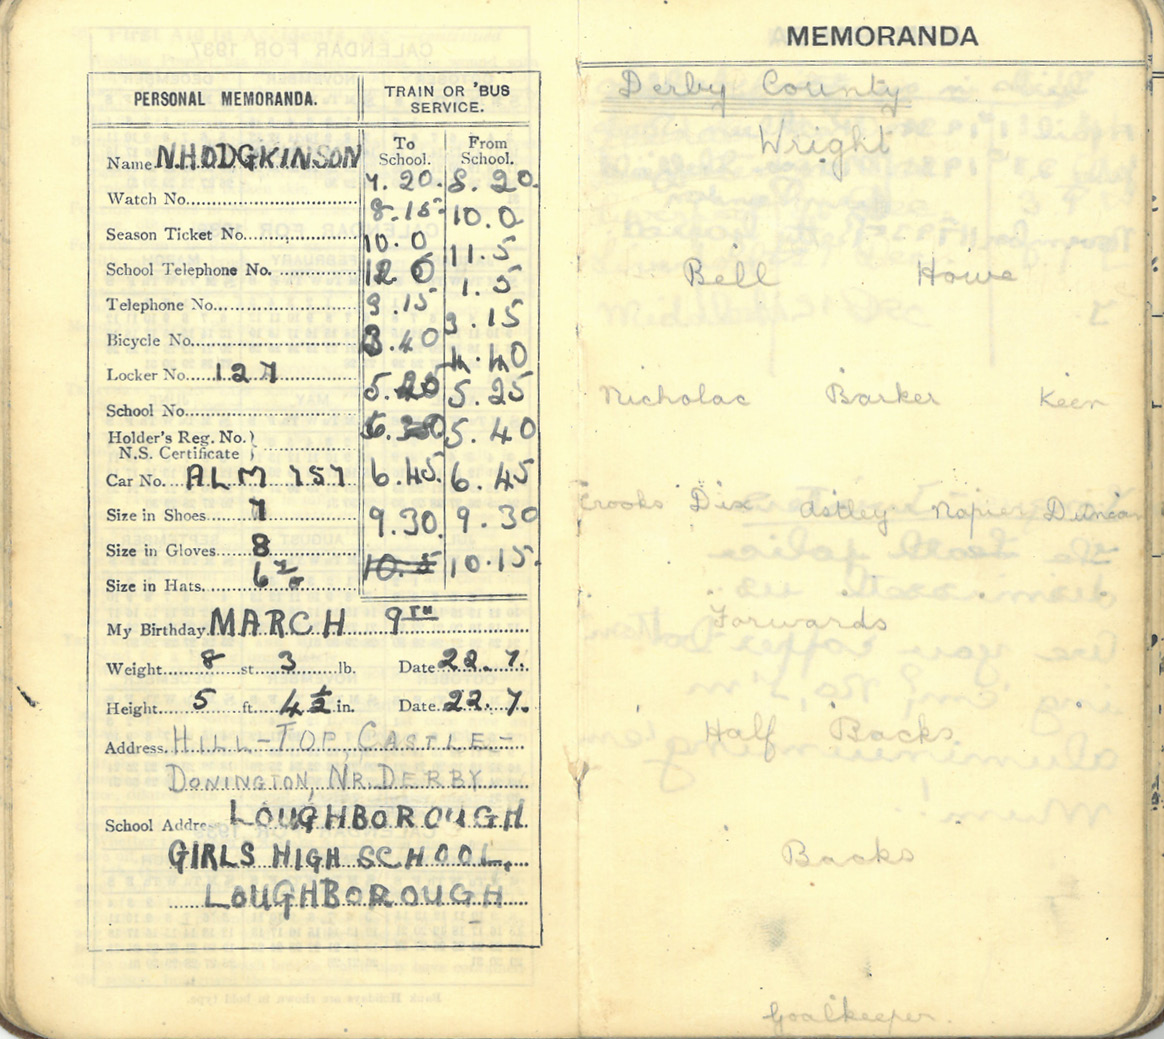 PERSONAL MEMORANDA.
TRAIN OR 'BUS
SERVICE.
To
School.
From
School.
Name N.HODGKINSON
7. 20. 8. 20.
Watch No.
8. 15. 10. 0
Season Ticket No.
10. 0 11. 5
School Telephone No.
12 0 1. 5
Telephone No.
3. 15 3. 15
Bicycle No.
3.40 4.40
Locker No. 127
5. 20 5. 25
School No.
Holder's Reg. No.
N.S. Certificate
6. 30 5. 40
Car No. ALM 757
6.45. 6. 45
Size in Shoes 7
9.30. 9. 30
Size in Gloves 8
10. 5 10.15.
Size in Hats 6
My Birthday MARCH 9TH
Weight 8 st 3 lb. Date 22. 7.
Height 5 ft. 4½ in. Date 22. 7.
Address. HILL-TOP, CASTLE-
DONINGTON, NR. DERBY
School Addre LOUGHBOROUGH
GIRLS HIGH SCHOOL,
LOUGHBOROUGH
MEMORANDA
Derby County
Wright
Bell Howe
Nicholac Barker Keen
Crooks Dix Astley Napier Duncan
Forwards
Half Backs
Backs
Goalkeeper.